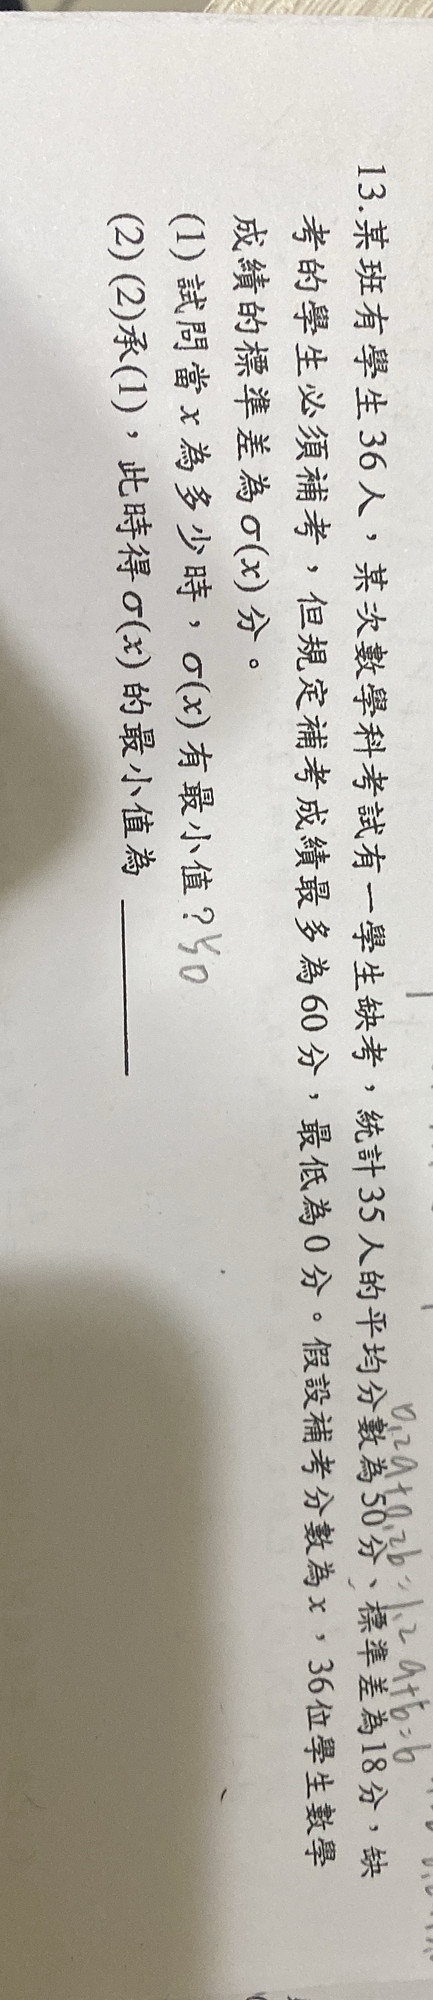 0.2a+0.2b=1.2 a+b=6
13.某班有學生36人，某次數學科考試有一學生缺考，統計35人的平均分數為50分、標準差為18分，缺
考的學生必須補考，但規定補考成績最多為60分，最低為0分。假設補考分數為x，36位學生數學
成績的標準差為σ(x)分。
(1) 試問當x為多少時，σ(x)有最小值？50
(2) (2)承(1)，此時得σ(x)的最小值為